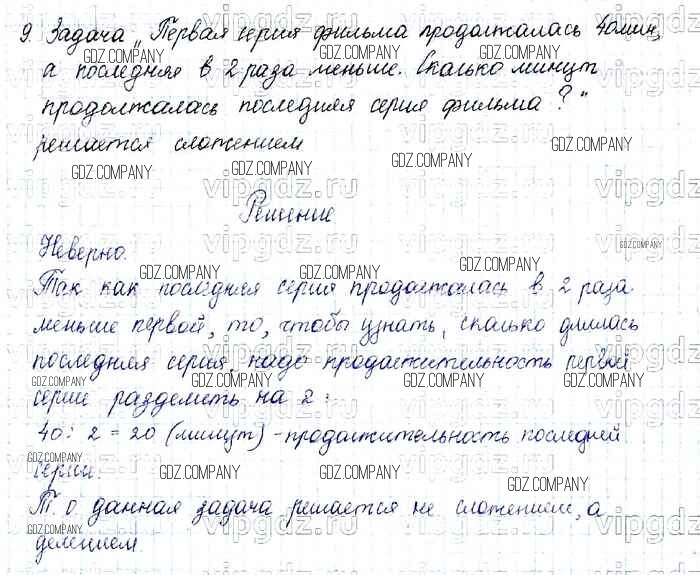 9. Задача „Первая серия фильма продолжалась 40 мин,
а последняя в 2 раза меньше. Сколько минут
продолжалась последняя серия фильма?"
решается сложением
Решение
Неверно.
Так как последняя серия продолжалась в 2 раза
меньше первой, то, чтобы узнать, сколько длилась
последняя серия, надо продолжительность первой
серии разделить на 2:
40 : 2 = 20 (минут) - продолжительность последней
серии.
Т. о. данная задача решается не сложением, а
делением.
GDZ.COMPANY
vipgdz.ru